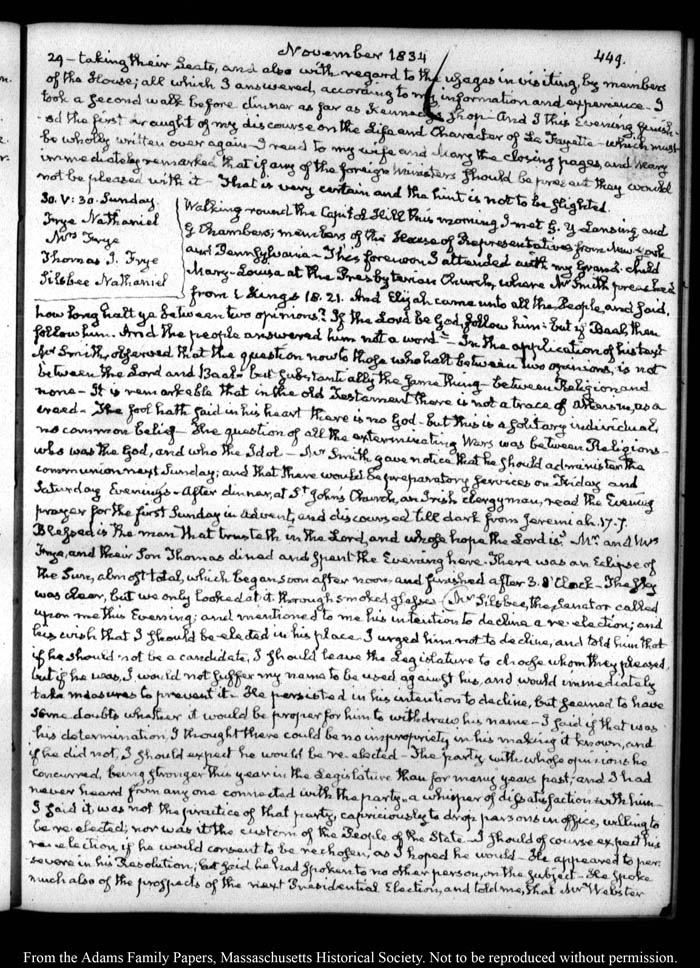 November 1834
449.
29 – taking their Seats, and also with regard to the usages in visiting, by members
of the House; all which I answered, according to my information and experience – I
took a second walk before dinner as far as Kennedy's Shop – And I this Evening finish-
ed the first draught of my discourse on the Life and Character of La Fayette – which must
be wholly written over again – I read to my wife and Mary the closing pages, and Mary
immediately remarked that if any of the foreign Ministers should be present they would
not be pleased with it – That is very certain and the hint is not to be slighted.
30. V: 30. Sunday
Frye Nathaniel
Mrs Frye
Thomas J. Frye
Silsbee Nathaniel
Walking round the Capitol Hill this morning I met G. Y. Lansing, and
G Chambers; members of the House of Representatives from New-York
and Pennsylvania – This forenoon I attended with my Grand-child
Mary-Louisa at the Presbyterian Church, where Mr Smith preached
from 1 Kings 18.21. And Elijah came unto all the People, and said,
how long halt ye between two opinions? If the Lord be God, follow him: but if Baal, then
follow him. And the people answered him not a word – In the application of his text
Mr Smith, observed that the question now to those who halt between two opinions, is not
between the Lord and Baal – but substantially the same thing – between Religion and
none – It is remarkable that in the old Testament there is not a trace of Atheism, as a
creed – The fool hath said in his heart there is no God – but this is a solitary individual,
no common belief – The question of all the exterminating Wars was between Religions –
who was the God, and who the Idol – Mr Smith gave notice that he should administer the
communion next Sunday; and that there would be preparatory services on Friday and
Saturday Evenings – After dinner, at St John's Church, an Irish clergyman, read the Evening
prayer for the first Sunday in Advent, and discoursed till dark from Jeremiah. 17.7.
Blessed is the man that trusteth in the Lord, and whose hope the Lord is. Mr. and Mrs
Frye, and their Son Thomas dined and spent the Evening here. There was an Eclipse of
the Sun, almost total, which began soon after noon, and finished after 3. O'Clock – The sky
was clear, but we only looked at it through smoked glasses Mr Silsbee, the Senator called
upon me this Evening; and mentioned to me his intention to decline a re-election; and
his wish that I should be elected in his place – I urged him not to decline, and told him that
if he should not be a candidate, I should leave the Legislature to choose whom they pleased,
but if he was, I would not suffer my name to be used against his, and would immediately
take measures to prevent it – He persisted in his intention to decline, but seemed to have
some doubts whether it would be proper for him to withdraw his name – I said if that was
his determination, I thought there could be no impropriety in his making it known, and
if he did not, I should expect he would be re-elected – The party with whose opinions he
concurred, being stronger this year in the Legislature than for many years past, and I had
never heard from any one connected with the party – a whisper of dissatisfaction with him –
I said it was not the practice of that party, capriciously to drop persons in office, willing to
be re-elected; nor was it the custom of the People of the State – I should of course expect his
re-election if he would consent to be rechosen, as I hoped he would – He appeared to per-
severe in his Resolution; but said he had spoken to no other person, on the subject – He spoke
much also of the prospects of the next Presidential Election, and told me, that Mr Webster
From the Adams Family Papers, Massachusetts Historical Society. Not to be reproduced without permission.